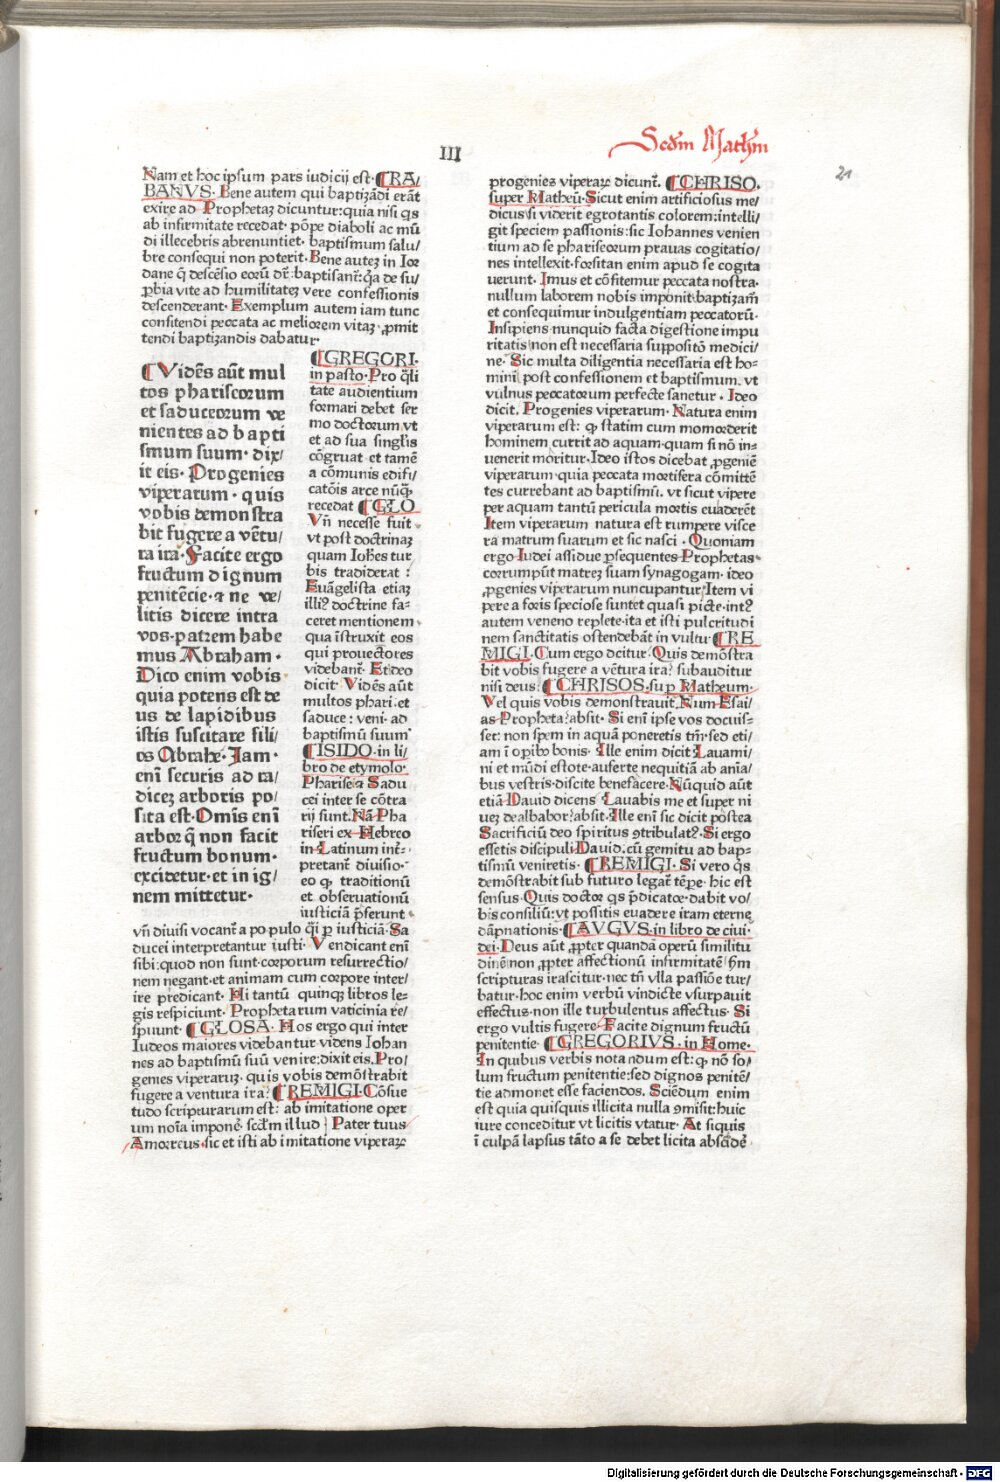 III
Secdm Mathm
21
Nam et hoc ipsum pars iudicij est· RA/
BANVS· Bene autem qui baptizādi erāt
exire ad Prophetaȝ dicuntur: quia nisi qs
ab infirmitate recedat· pōpe diaboli ac mū
di illecebris abrenuntiet· baptismum salu/
bre consequi non poterit· Bene auteȝ in Ior
dane q̄ descēsio eorū dr̄: baptisant̄: qa de su/
ꝑbia vite ad humilitateȝ vere confessionis
descenderant· Exemplum autem iam tunc
confitendi peccata ac meliorem vitaȝ ꝓmit
tendi baptizandis dabatur·
Vidēs aūt mul
tos phariseorum
et saduceorum ve
nientes ad bapti
smum suum· dix/
it eis· Progenies
viperarum· quis
vobis demonstra
bit fugere a vētu/
ra ira· Facite ergo
fructum dignum
penitēcie· ⁊ ne ve/
litis dicere intra
vos· patrem habe
mus Abraham·
Dico enim vobis
quia potens est de
us de lapidibus
istis suscitare fili/
os Abrahe· Jam·
eni securis ad ra/
diceȝ arboris po/
sita est· Omīs enī
arbor q̄ non facit
fructum bonum·
excidetur· et in ig/
nem mittetur·
GREGORI·
in pasto· Pro q̄li
tate audientium
formari debet ser
mo doctorum vt
et ad sua singlis
cōgruat et tamē
a cōmunis edifi/
catōis arce nūq̄
recedat GLO
Vn̄ necesse fuit·
vt post doctrinaȝ
quam Ioh̄es tur
bis tradiderat :
Euāgelista etiaȝ
illi⁹ doctrine fa=
ceret mentionem
qua īstruxit eos
qui prouectores
videbant̄· Et ideo
dicit· Vidēs aūt
multos phari· et
saduce: veni· ad
baptismū suum
ISIDO· in li/
bro de etymolo·
Pharisei ⁊ Sadu
cei inter se cōtra
rij sunt· Nā Pha
risei ex Hebreo
in Latinum inē=
pretant̄ diuisio·
eo q̨ traditionū
et obseruationū
iusticiā p̄ferunt·
vn̄ diuisi vocant̄ a populo q̄i ꝑ iusticiā· Sa
ducei interpretantur iusti· Vendicant enī
sibi: quod non sunt· corporum resurrectio/
nem negant· et animam cum corpore inter/
ire predicant· Hi tantū quinqȝ libros le=
gis respiciunt· Prophetarum vaticinia re/
spuunt· GLOSA· Hos ergo qui inter
Iudeos maiores videbantur videns Iohan
nes ad baptismū suū venire: dixit eis. Pro/
genies viperarūȝ· quis vobis demōstrabit
fugere a ventura ira? REMIGI· Cōsue
tudo scripturarum est: ab imitatione oper
um noīa imponē· scdm illud Pater tuus
Amorreus· sic et isti ab imitatione viperarꝝ
progenies viperarꝝ dicunt̄. CHRISO·
super Matheū· Sicut enim artificiosus me/
dicus si viderit egrotantis colorem: intelli/
git speciem passionis: sic Iohannes venien
tium ad se phariseorum prauas cogitatio/
nes intellexit· forsitan enim apud se cogita
uerunt· Imus et cōfitemur peccata nostra·
nullum laborem nobis imponit· baptizam̄
et consequimur indulgentiam peccatorū·
Insipiens nunquid facta digestione impu
ritatis non est necessaria suppositō medici/
ne· Sic multa diligentia necessaria est ho=
mini post confessionem et baptismum· vt
vulnus peccatorum perfecte sanetur· Ideo
dicit· Progenies viperarum· Natura enim
viperarum est: q̨ statim cum momorderit
hominem currit ad aquam· quam si nō in=
uenerit moritur· Ideo istos dicebat ꝓgeniē
viperarum· quia peccata mortifera cōmittē
tes currebant ad baptismū· vt sicut vipere
per aquam tantū pericula mortis euaderēt
Item viperarum natura est rumpere visce
ra matrum suarum et sic nasci· Quoniam
ergo Iudei assidue ꝑsequentes Prophetas
corrumpūt matreȝ suam synagogam· ideo
ꝓgenies viperarum nuncupantur· Item vi
pere a foris speciose sunt et quasi picte· int⁹
autem veneno replete· ita et isti pulcritudi
nem sanctitatis ostendebāt in vultu· RE
MIGI· Cum ergo dcitur· Quis demōstra
bit vobis fugere a vētura ira? subauditur
nisi deus? CHRISOS· sup Matheum·
Vel quis vobis demonstrauit· Num Esai/
as Propheta? absit· Si enī ipse vos docuis=
set: non spem in aquā poneretis tm̄: sed eti/
am ī operib⁹ bonis· Ille enim dicit Lauami/
ni et mūdi estote· auferte nequitiā ab aniā/
bus vestris· discite benefacere· Nūquid aūt
etiā Dauid dicens Lauabis me et super ni
ueȝ dealbabor? absit· Ille enī sic dicit postea
Sacrificiū deo spiritus ꝯtribulat⁹· Si ergo
essetis discipuli Dauid· cū gemitu ad bap=
tismū veniretis· REMIGI· Si vero q̄s
demōstrabit sub futuro legat̄ tēpe· hic est
sensus· Quis doctor qs p̄dicator· dabit vo/
bis consiliū: vt possitis euadere iram eterne
dāpnationis· AVGVS· in libro de ciui·
dei· Deus aūt ꝓpter quandā operū similitu
dinē non ꝓpter affectionū infirmitatē s̄m
scripturas irascitur· nec tn̄ vlla passiōe tur/
batur· hoc enim verbū vindicte vsurpauit
effectus· non ille turbulentus affectus· Si
ergo vultis fugere· Facite dignum fructū
penitentie· GREGORIVS· in Home·
In quibus verbis notandum est: q̨ nō so/
lum fructum penitentie: sed dignos penitē/
tie admonet esse faciendos. Sciēdum enim
est quia quisquis illicita nulla ꝯmisit: huic
iure conceditur vt licitis vtatur· At si quis
ī culpā lapsus tāto a se debet licita abscidē
Digitalisierung gefördert durch die Deutsche Forschungsgemeinschaft - DFG